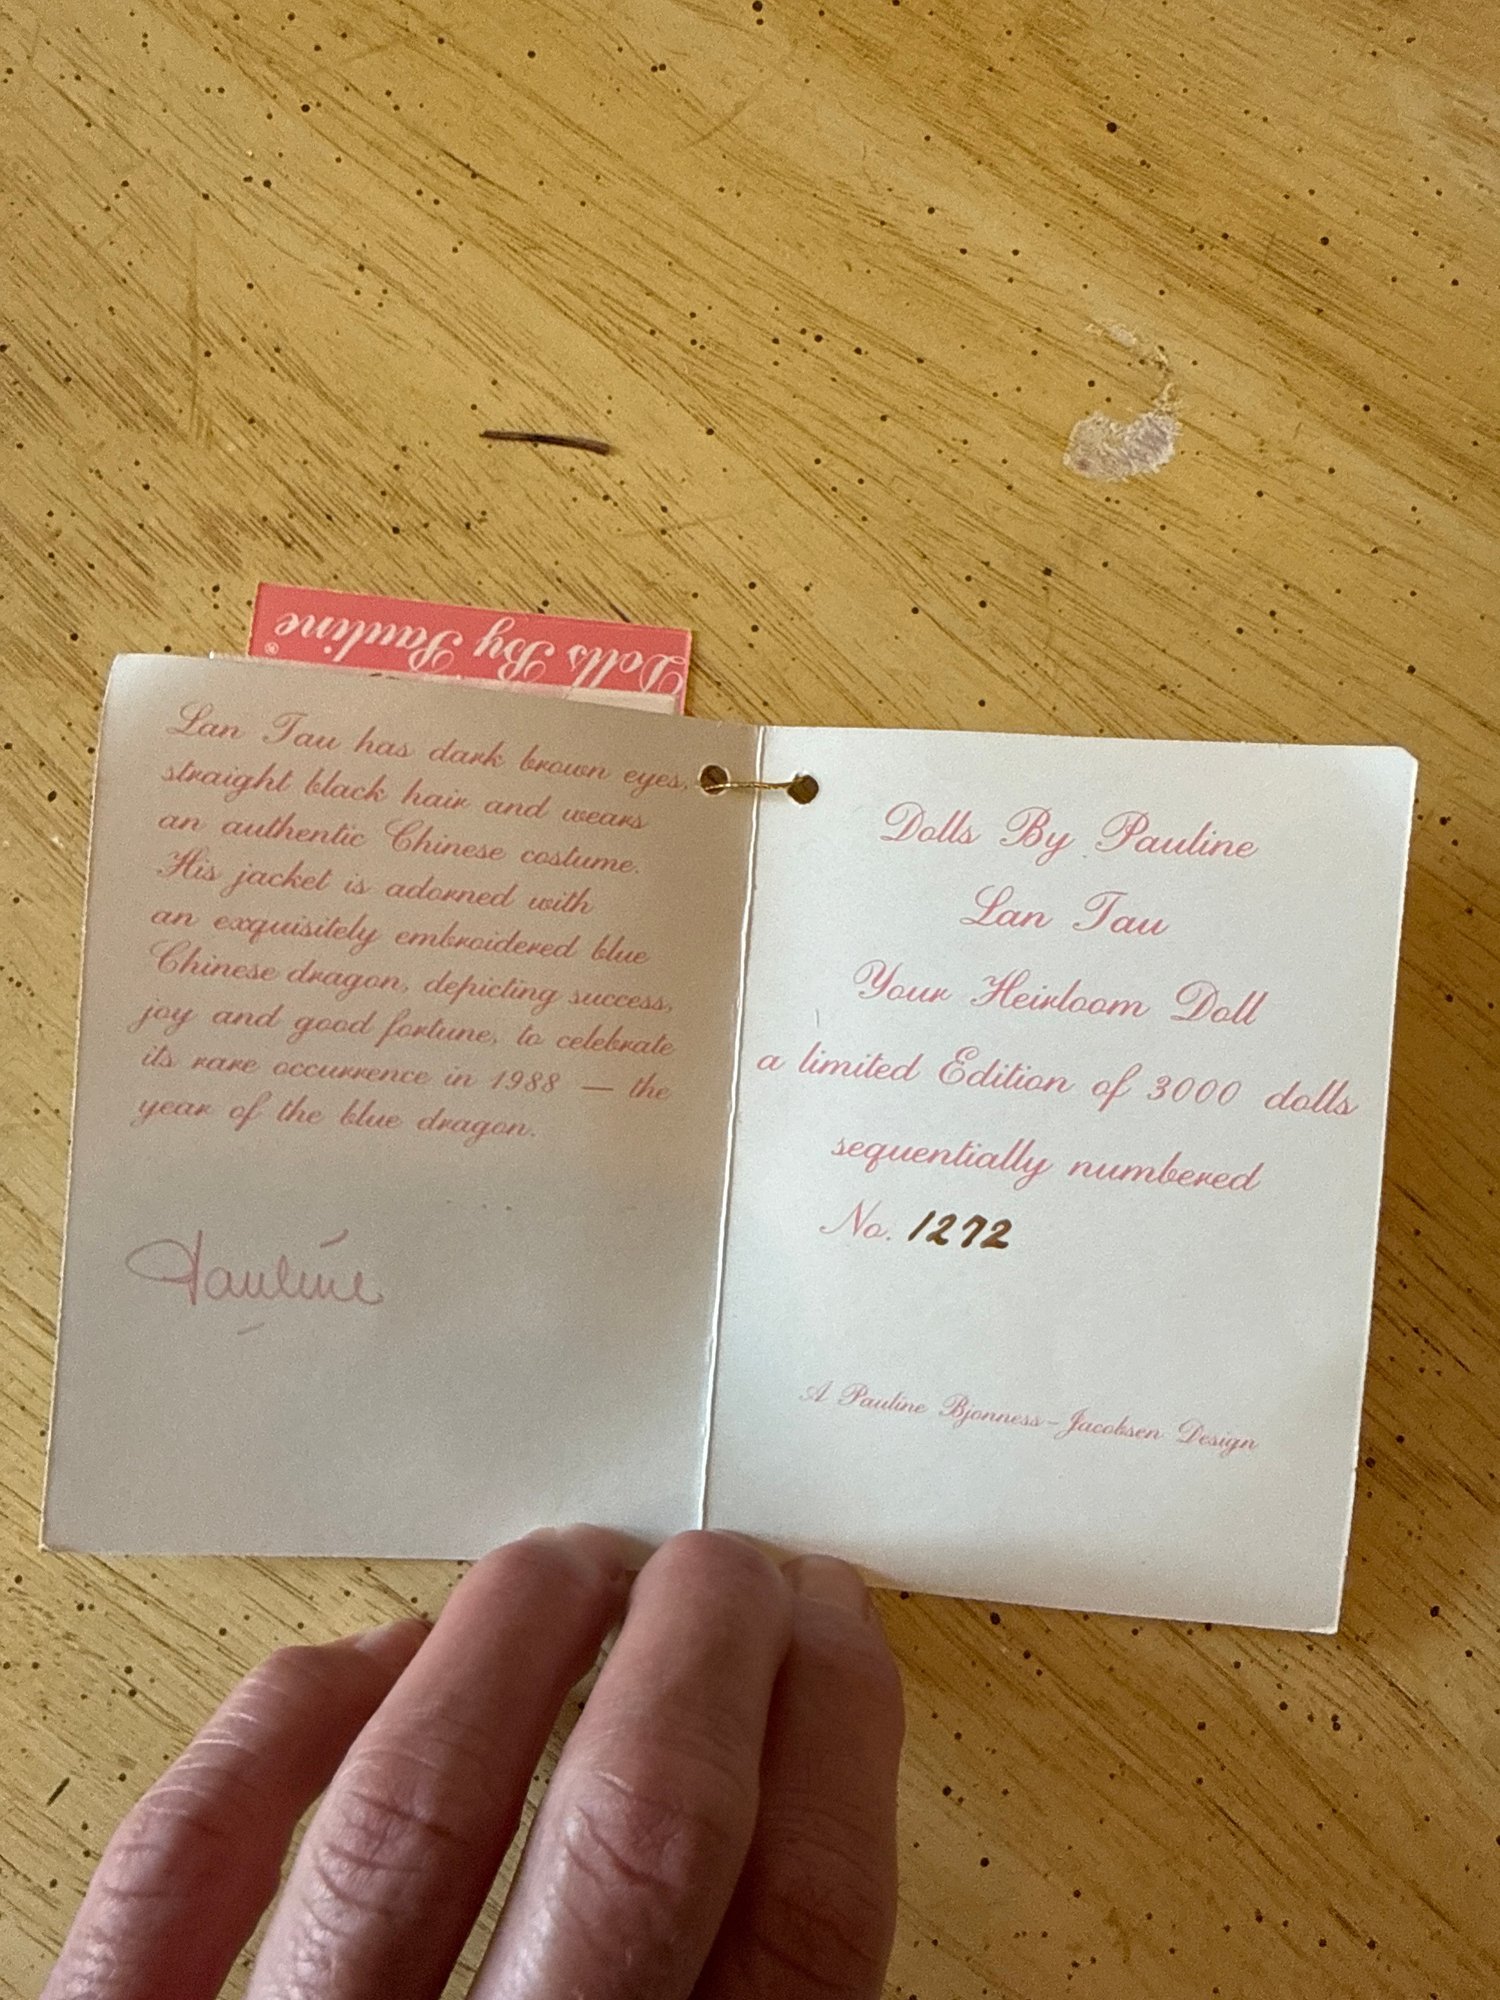 Dolls By Pauline®
Lan Tau has dark brown eyes,
straight black hair and wears
an authentic Chinese costume.
His jacket is adorned with
an exquisitely embroidered blue
Chinese dragon, depicting success,
joy and good fortune, to celebrate
its rare occurrence in 1988 — the
year of the blue dragon.
Pauline
Dolls By Pauline
Lan Tau
Your Heirloom Doll
a limited Edition of 3000 dolls
sequentially numbered
No. 1272
A Pauline Bjonness-Jacobsen Design